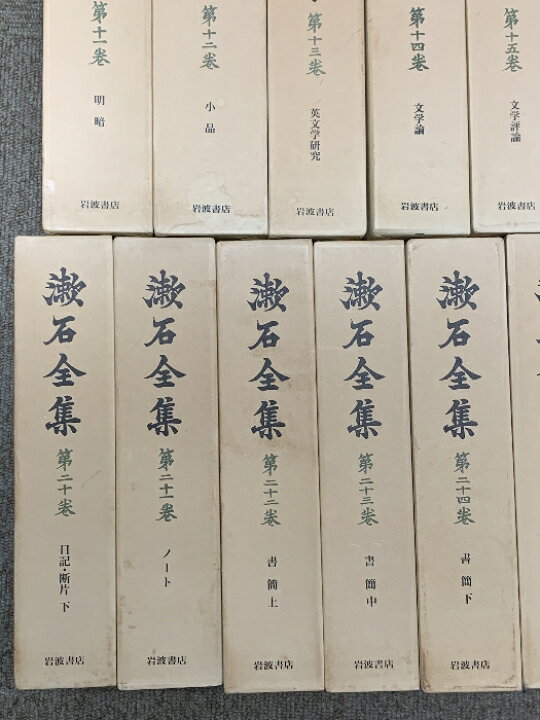 第十一巻
明暗
岩波書店
第十二巻
小品
岩波書店
第十三巻
英文学研究
岩波書店
第十四巻
文学論
岩波書店
第十五巻
文学評論
岩波書店
漱石全集
第二十巻
日記・断片 下
岩波書店
漱石全集
第二十一巻
ノート
岩波書店
漱石全集
第二十二巻
書簡 上
岩波書店
漱石全集
第二十三巻
書簡 中
岩波書店
漱石全集
第二十四巻
書簡 下
岩波書店